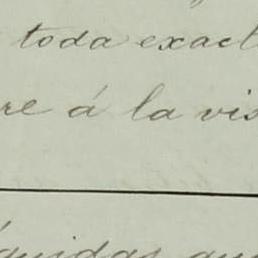 toda exact
re á la vis
quidas que